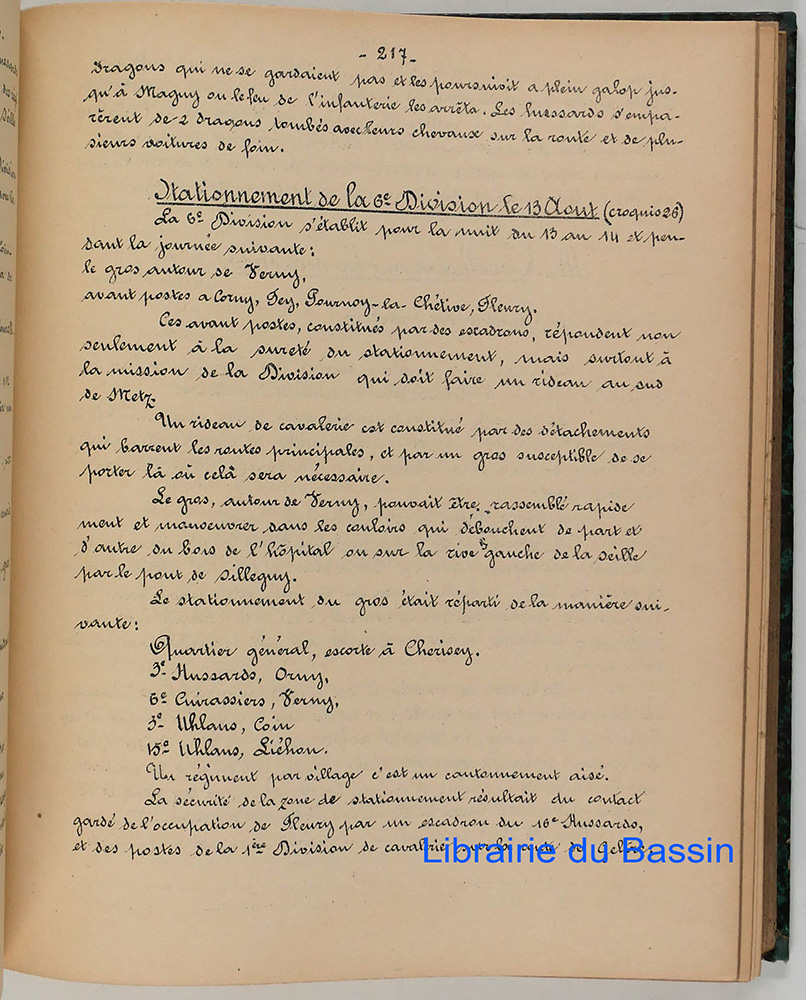 - 217 -
Dragons qui ne se gardaient pas et les poursuivit a plein galop jus-
qu'à Magny ou le feu de l'infanterie les arrêta. Les hussards s'empa-
rèrent de 2 dragons tombés avec leurs chevaux sur la route et de plu-
sieurs voitures de foin.
Stationnement de la 6e Division le 13 Aout (croquis 26)
La 6e Division s'établit pour la nuit du 13 au 14 et pen-
dant la journée suivante :
le gros autour de Verny,
avant postes a Corny, Fey, Pournoy-la-Chétive, Fleury.
Ces avant postes, constitués par des escadrons, répondent non
seulement à la sureté du stationnement, mais surtout à
la mission de la Division qui doit faire un rideau au sud
de Metz.
Un rideau de cavalerie est constitué par des détachements
qui barrent les routes principales, et par un gros susceptible de se
porter là où celà sera nécessaire.
Le gros, autour de Verny, pouvait être rassemblé rapide
ment et manoeuvrer dans les couloirs qui débouchent de part et
d'autre du bois de l'hôpital ou sur la rive gauche de la Seille
par le pont de Sillegny.
Le stationnement du gros était réparti de la manière sui-
vante :
Quartier général, escorte à Cherisey.
3e Hussards, Orny,
6e Cuirassiers, Verny,
3e Uhlans, Coin
15e Uhlans, Liéhon.
Un régiment par village c'est un cantonnement aisé.
La sécurité de la zone de stationnement résultait du contact
gardé de l'occupation de Fleury par un escadron du 16e Hussards,
et des postes de la 1ère Division de cavalerie sur la route de
Librairie du Bassin